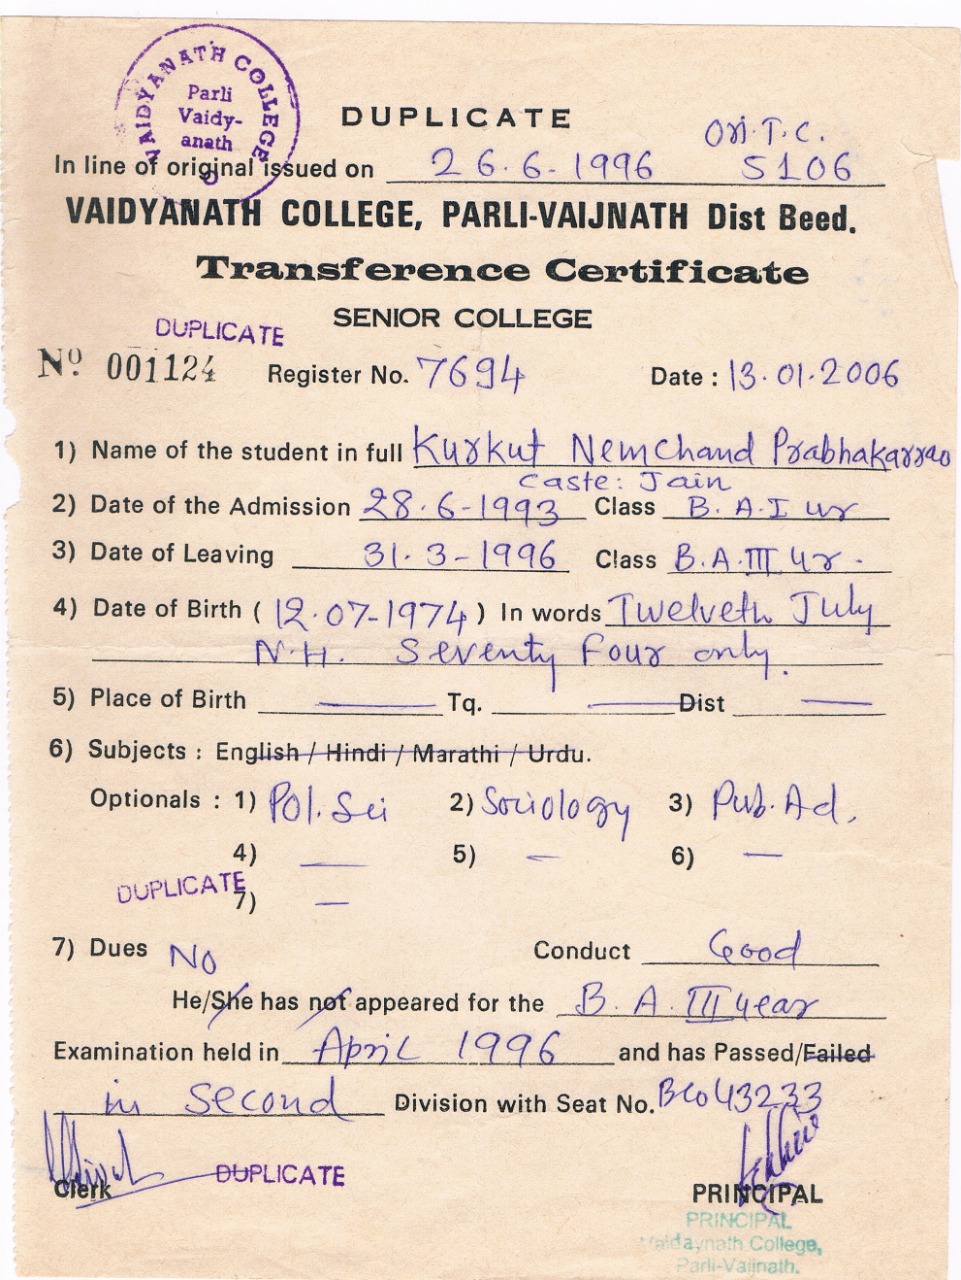 VAIDYANATH COLLEGE
Parli
Vaidy-
anath
DUPLICATE
Ori.T.C.
In line of original issued on 26.6-1996 5106
VAIDYANATH COLLEGE, PARLI-VAIJNATH Dist Beed.
Transference Certificate
SENIOR COLLEGE
DUPLICATE
Nº 001124 Register No. 7694 Date : 13.01.2006
1) Name of the student in full Kurkut Nemchand Prabhakarrao
Caste: Jain
2) Date of the Admission 28.6-1993 Class B.A.I yr
3) Date of Leaving 31.3-1996 Class B.A.III yr.
4) Date of Birth ( 12.07-1974 ) In words Twelveth July
N.H. Seventy Four only.
5) Place of Birth — Tq. — Dist —
6) Subjects : English / Hindi / Marathi / Urdu.
Optionals : 1) Pol.Sci 2) Sociology 3) Pub.Ad.
4) — 5) — 6) —
DUPLICATE
7) —
7) Dues No Conduct Good
He/She has not appeared for the B.A.III year
Examination held in April 1996 and has Passed/Failed
in Second Division with Seat No. BC043233
DUPLICATE
Clerk PRINCIPAL
PRINCIPAL
Vaidaynath College,
Parli-Vaijnath.